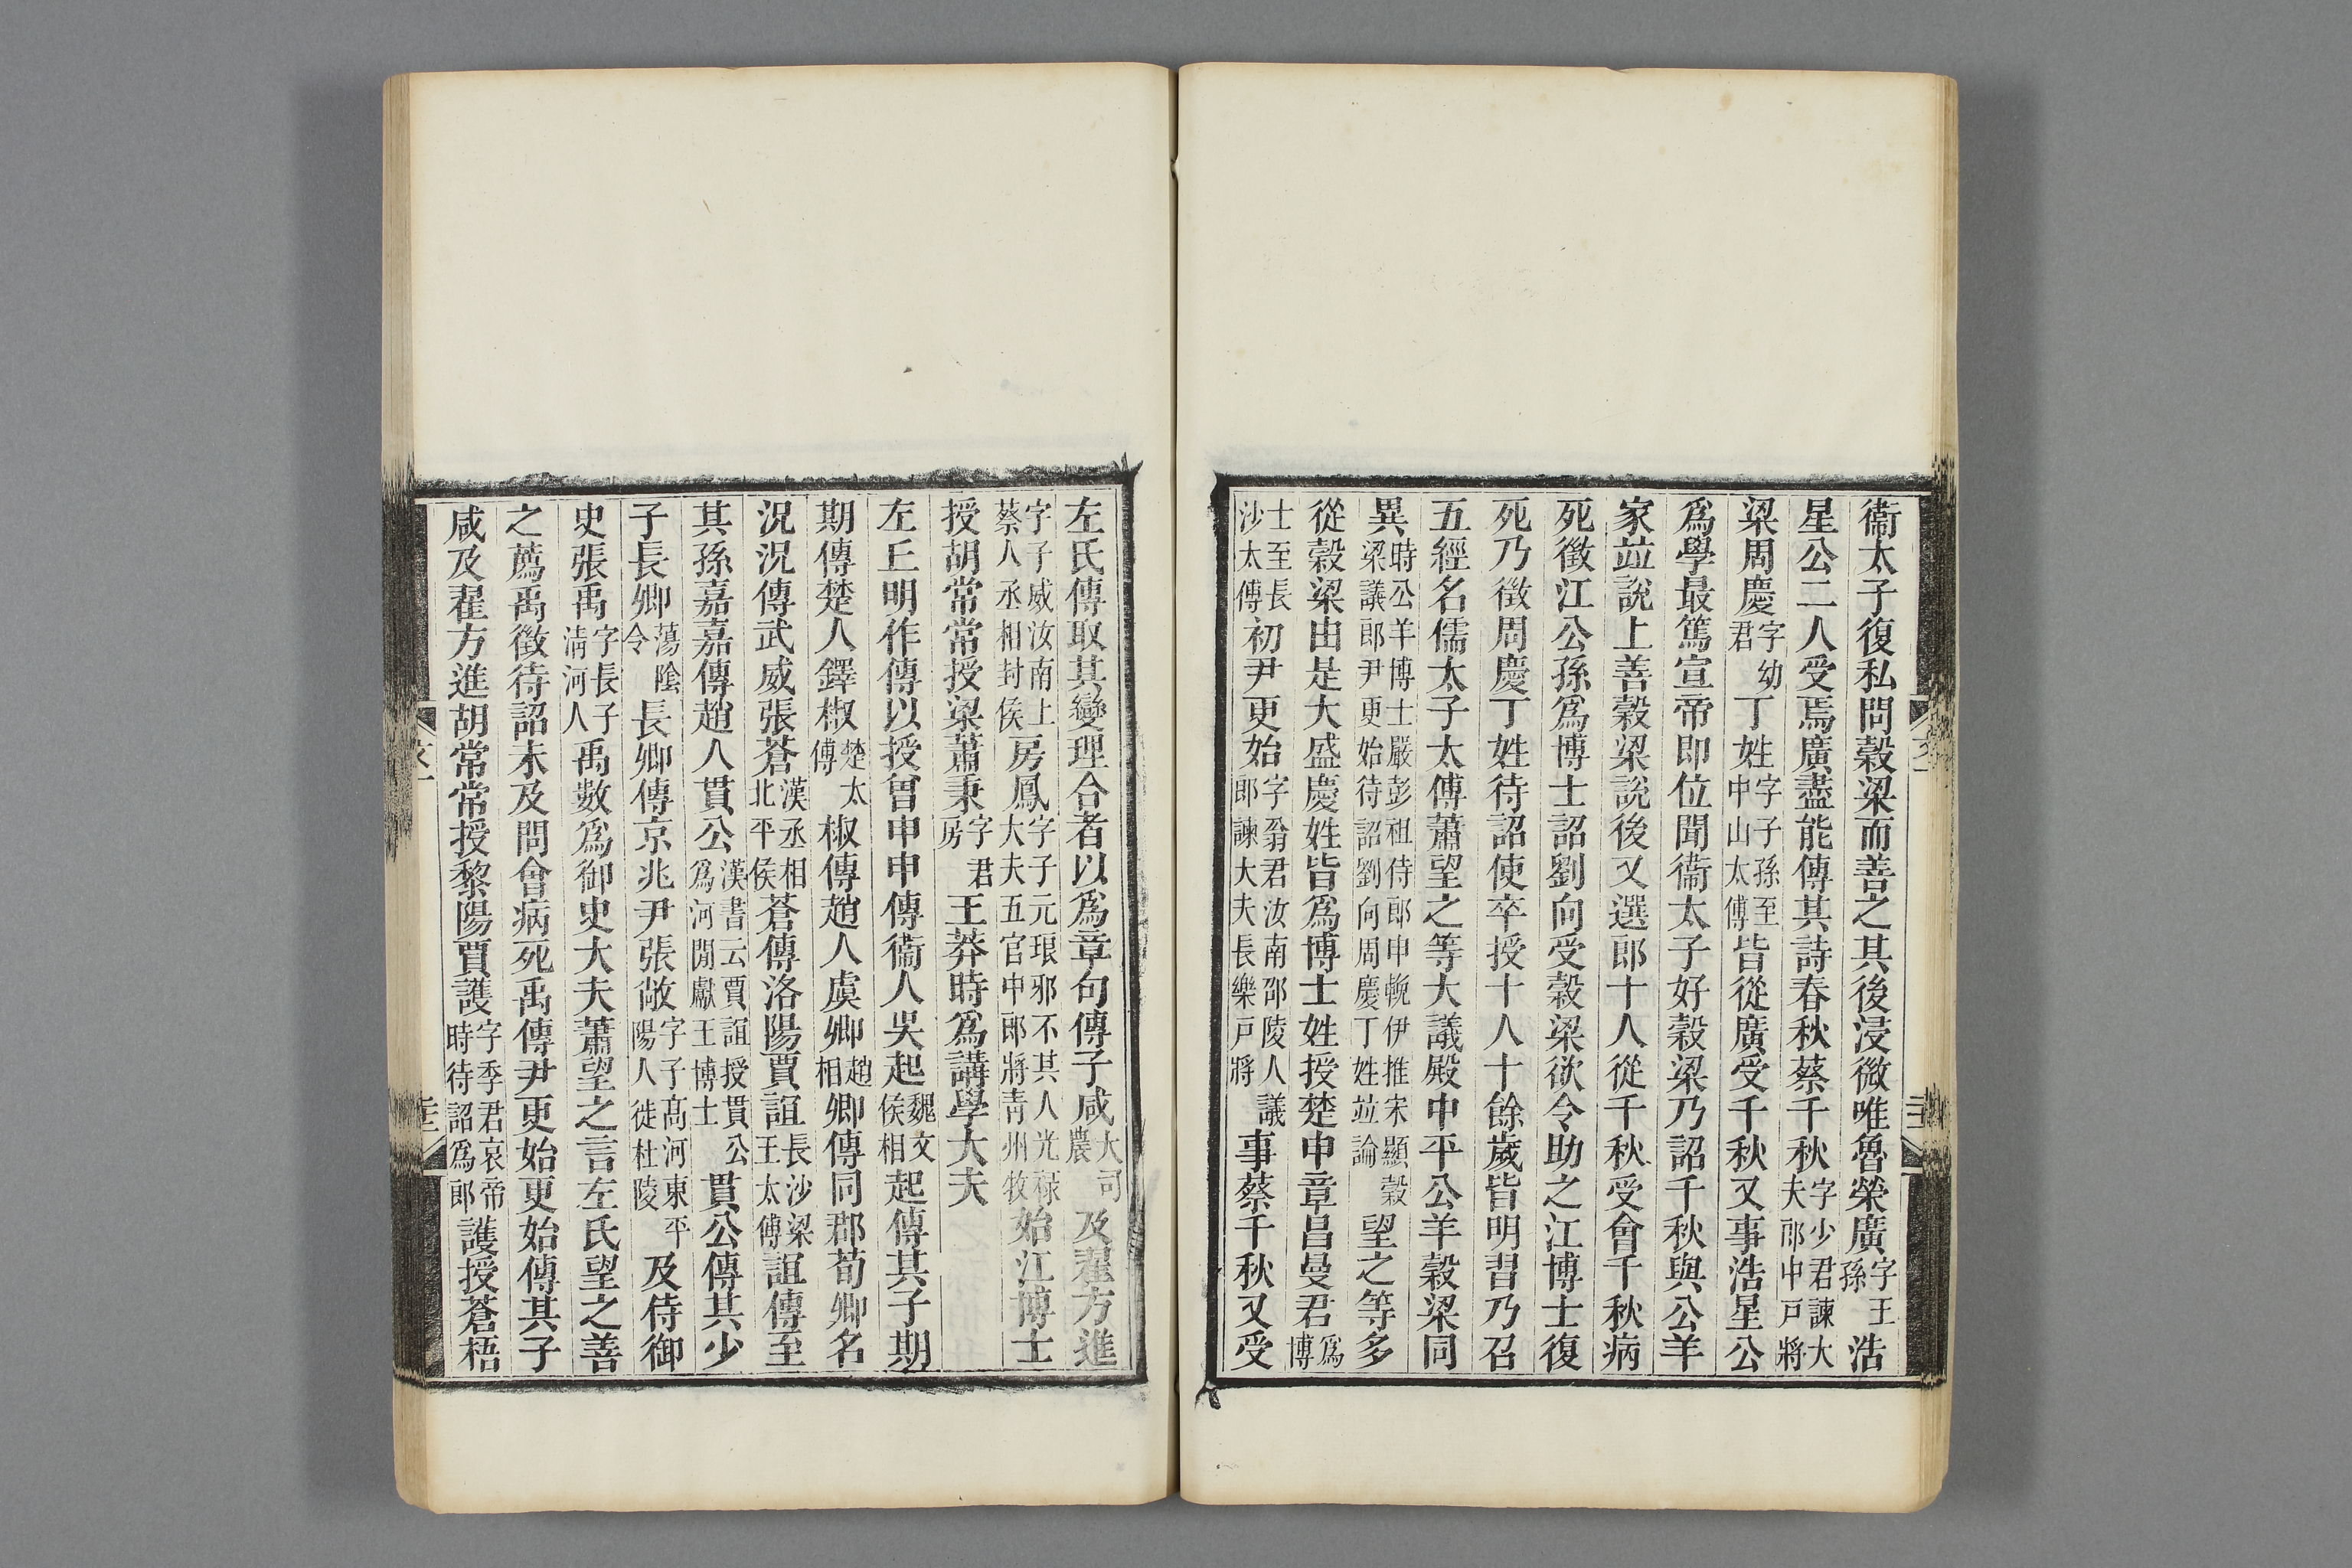 衞太子復私問穀梁而善之其後浸微唯魯榮廣字王孫浩
星公二人受焉廣盡能傳其詩春秋蔡千秋字少君諫大夫郎中戸將
梁周慶字幼君丁姓字子孫至中山太傅皆從廣受千秋又事浩星公
爲學最篤宣帝即位聞衞太子好穀梁乃詔千秋與公羊
家竝說上善穀梁說後又選郎十人從千秋受會千秋病
死徵江公孫爲博士詔劉向受穀梁欲令助之江博士復
死乃徵周慶丁姓待詔使卒授十人十餘歲皆明習乃召
五經名儒太子太傅蕭望之等大議殿中平公羊穀梁同
異時公羊博士嚴彭祖侍郎申輓伊推宋顯穀梁議郎尹更始待詔劉向周慶丁姓竝論望之等多
從穀梁由是大盛慶姓皆爲博士姓授楚申章昌曼君爲博
士至長沙太傅初尹更始字翁君汝南邵陵人議郎諫大夫長樂戸將事蔡千秋又受
左氏傳取其變理合者以爲章句傳子咸大司農及翟方進
字子威汝南上蔡人丞相封侯房鳳字子元琅邪不其人光祿大夫五官中郎將青州牧始江博士
授胡常常授梁蕭秉字君房王莽時爲講學大夫
左丘明作傳以授曾申申傳衞人吳起魏文侯相起傳其子期
期傳楚人鐸椒楚太傅椒傳趙人虞卿趙相卿傳同郡荀卿名
況況傳武威張蒼漢丞相北平侯蒼傳洛陽賈誼長沙梁王太傅誼傳至
其孫嘉嘉傳趙人貫公漢書云賈誼授貫公爲河閒獻王博士貫公傳其少
子長卿蕩陰令長卿傳京兆尹張敞字子高河東平陽人徙杜陵及侍御
史張禹字長子淸河人禹數爲御史大夫蕭望之言左氏望之善
之薦禹徵待詔未及問會病死禹傳尹更始更始傳其子
咸及翟方進胡常常授黎陽賈護字季君哀帝時待詔爲郎護授蒼梧